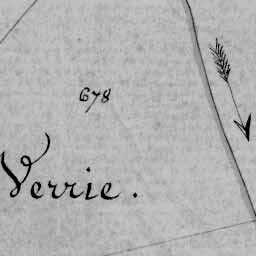 678
Verrie.